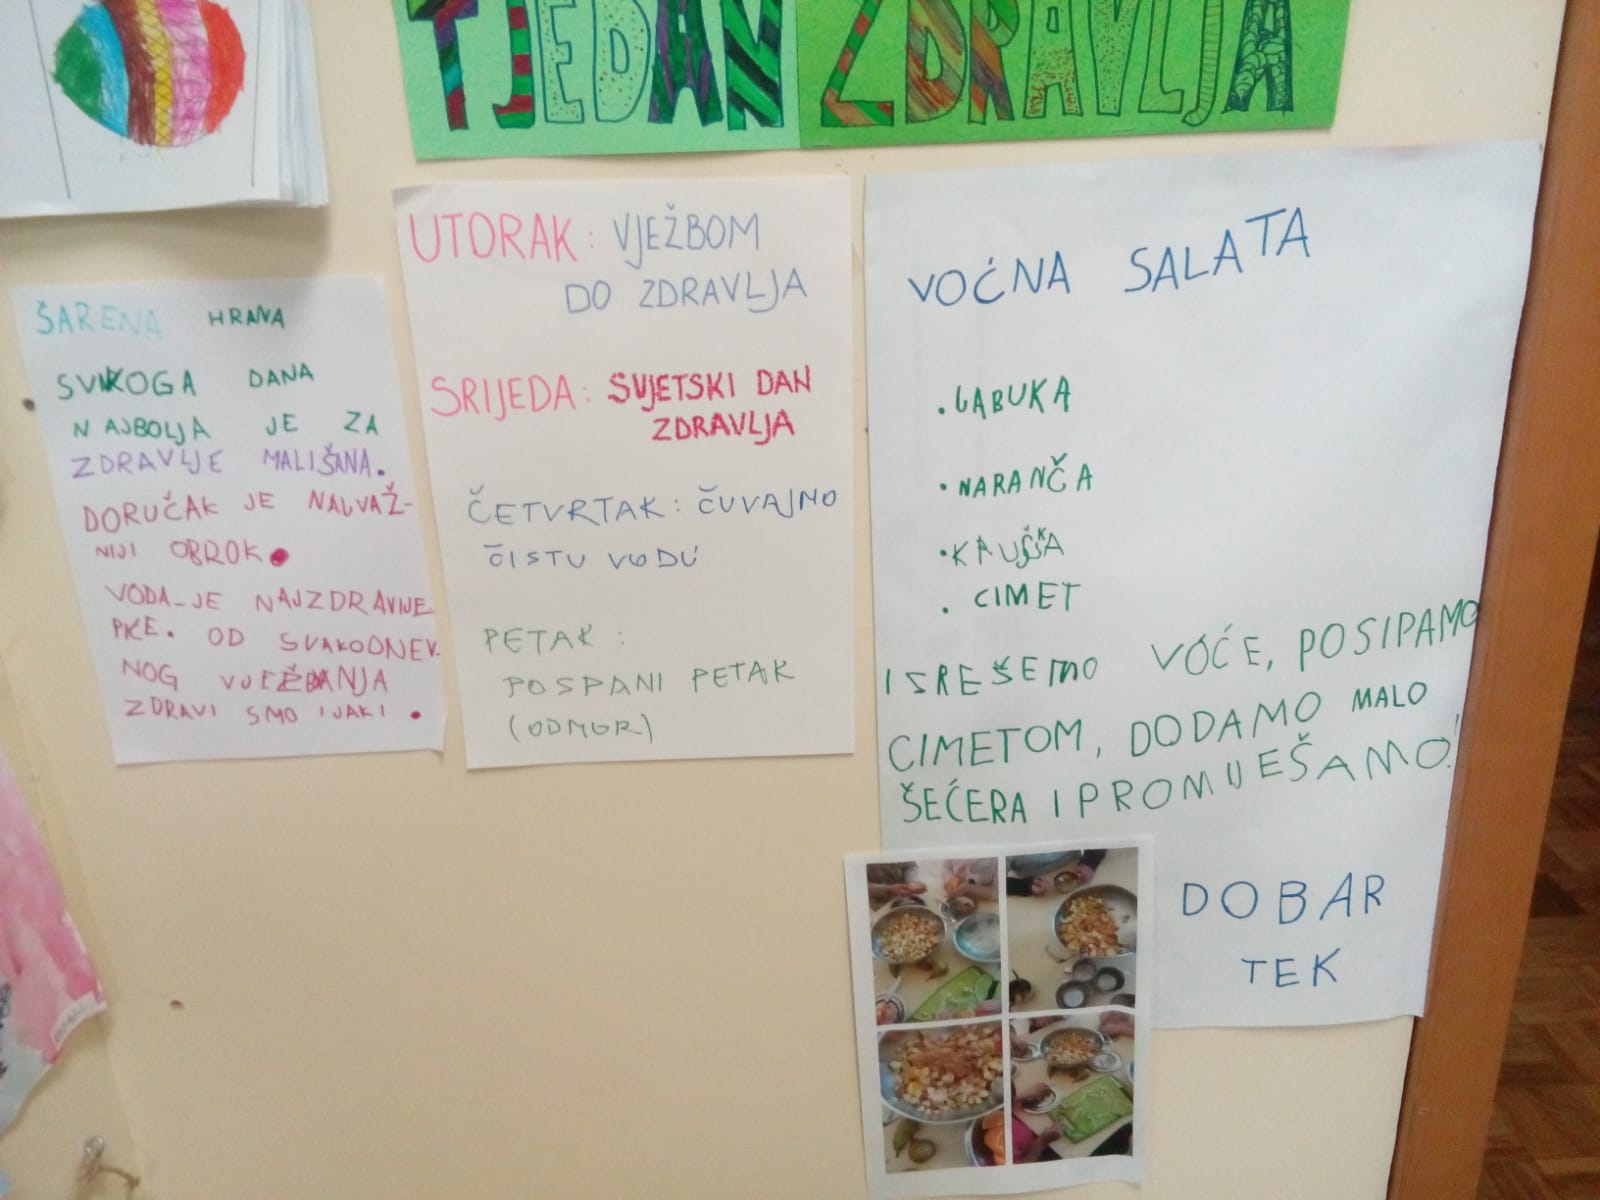 TJEDAN ZDRAVLJA
ŠARENA HRANA
SVAKOGA DANA
NAJBOLJA JE ZA
ZDRAVLJE MALIŠANA.
DORUČAK JE NAJVAŽ-
NIJI OBROK.
VODA JE NAJZDRAVIJE
PIĆE. OD SVAKODNEV-
NOG VJEŽBANJA
ZDRAVI SMO I JAKI.
UTORAK: VJEŽBOM
DO ZDRAVLJA
SRIJEDA: SVJETSKI DAN
ZDRAVLJA
ČETVRTAK: ČUVAJMO
ČISTU VODU
PETAK:
POSPANI PETAK
(ODMOR)
VOĆNA SALATA
• JABUKA
• NARANČA
• KRUŠKA
• CIMET
ISREŠEMO VOĆE, POSIPAMO
CIMETOM, DODAMO MALO
ŠEĆERA I PROMIJEŠAMO!
DOBAR
TEK